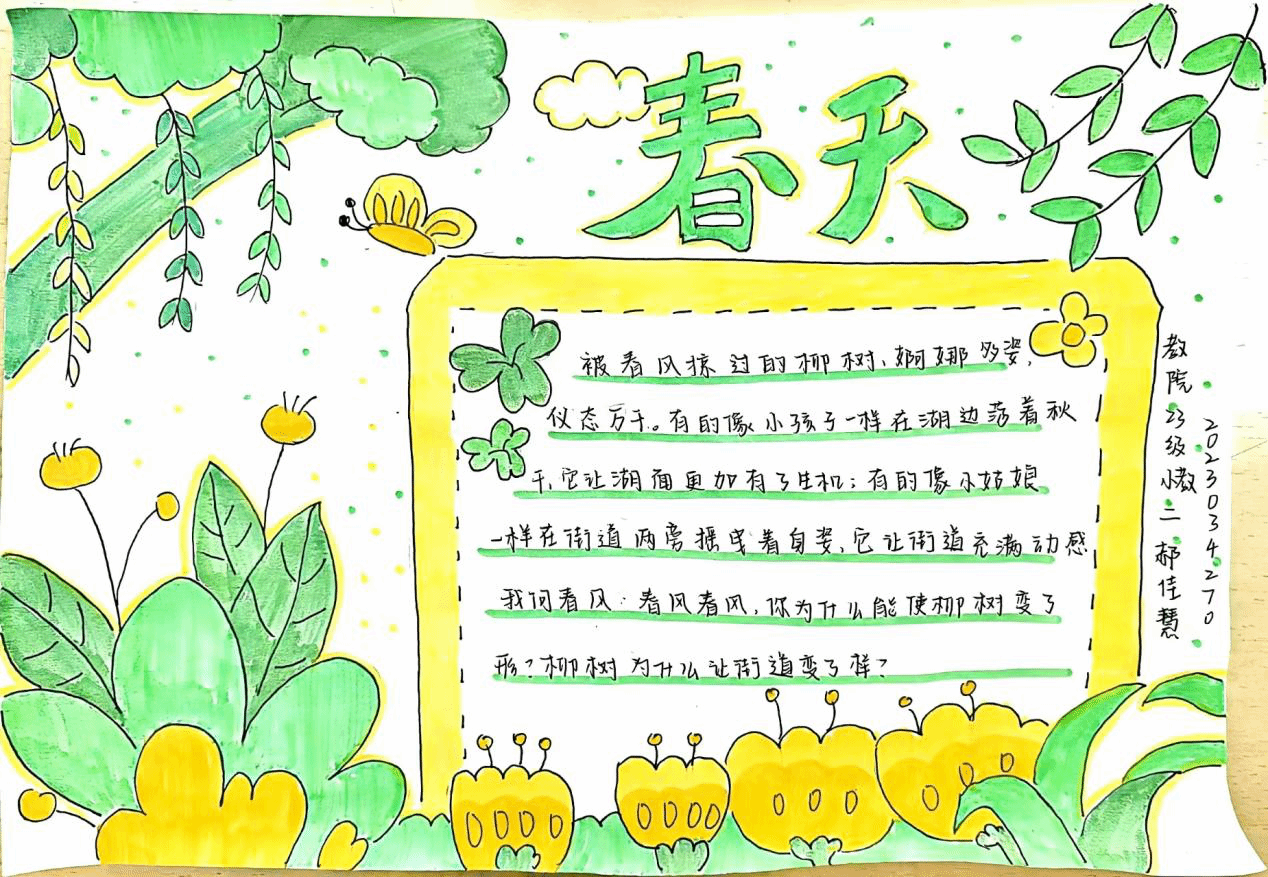 春天
被春风掠过的柳树、婀娜多姿,
仪态万千。有的像小孩子一样在湖边荡着秋
千,它让湖面更加有了生机;有的像小姑娘
一样在街道两旁摇曳着身姿,它让街道充满动感
我问春风:春风春风,你为什么能使柳树变了
形?柳树为什么让街道变了样?
教院23级小教二郝佳慧
2023034270